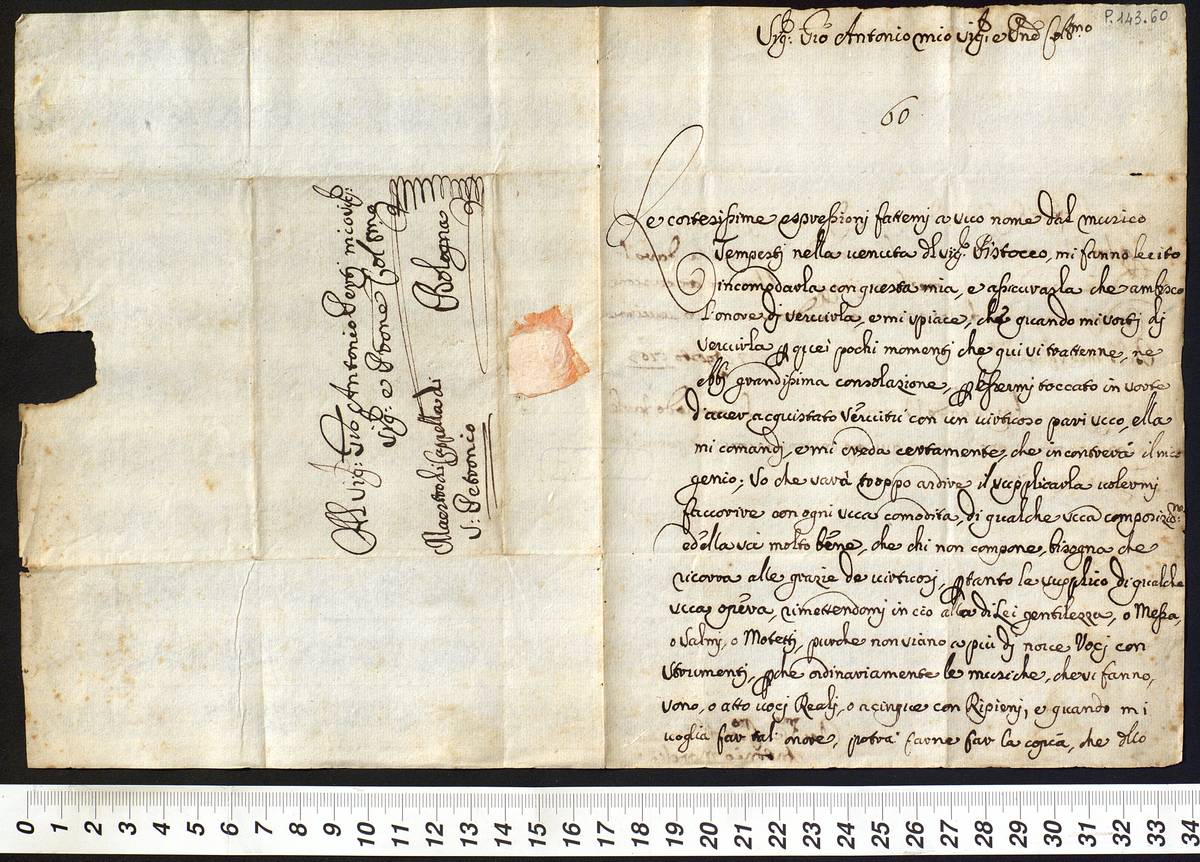 P.143.60
Sig.r Gio Antonio mio Sig.r e Pne Col.mo
60
Le cortesissime espressioni fatemi a suo nome dal musico
Tempesti nella venuta del Sig.r Pistocco, mi fanno lecito
incomodarla con questa mia, e assicurarla che ambisco
l'onore di servirla, e mi spiace, che quando mi sortì di
servirla p quei pochi momenti che qui si trattenne, ne
ebbi grandissima consolazione, p essermi toccato in sorte
d'aver acquistato servitù con un virtuoso pari suo, ella
mi comandi, e mi creda certamente, che incontrerà il mio
genio; So che sarà troppo ardire il supplicarla volermi
favorire con ogni sua comodità, di qualche sua composizio.ne
ed ella sà molto bene, che chi non compone, bisogna che
ricorra alle grazie de virtuosi, p tanto la supplico di qualche
sua opera, rimettendomi in ciò alla di Lei gentilezza, o Messa,
o Salmi, o Motetti, purche non siano a più di nove Voci con
Strumenti, pche ordinariamente le musiche, che si fanno,
sono, o otto voci Reali, o a cinque con Ripieni, e quando mi
voglia far tal onore, potrà farne far la copia, che dlo
Al Sig.r Gio Antonio Perti mio Sig.r
Sig.r e Prone Col.mo
Maestro di Cappella di
S. Petronio
Bologna
0 1 2 3 4 5 6 7 8 9 10 11 12 13 14 15 16 17 18 19 20 21 22 23 24 25 26 27 28 29 30 31 32 33 34